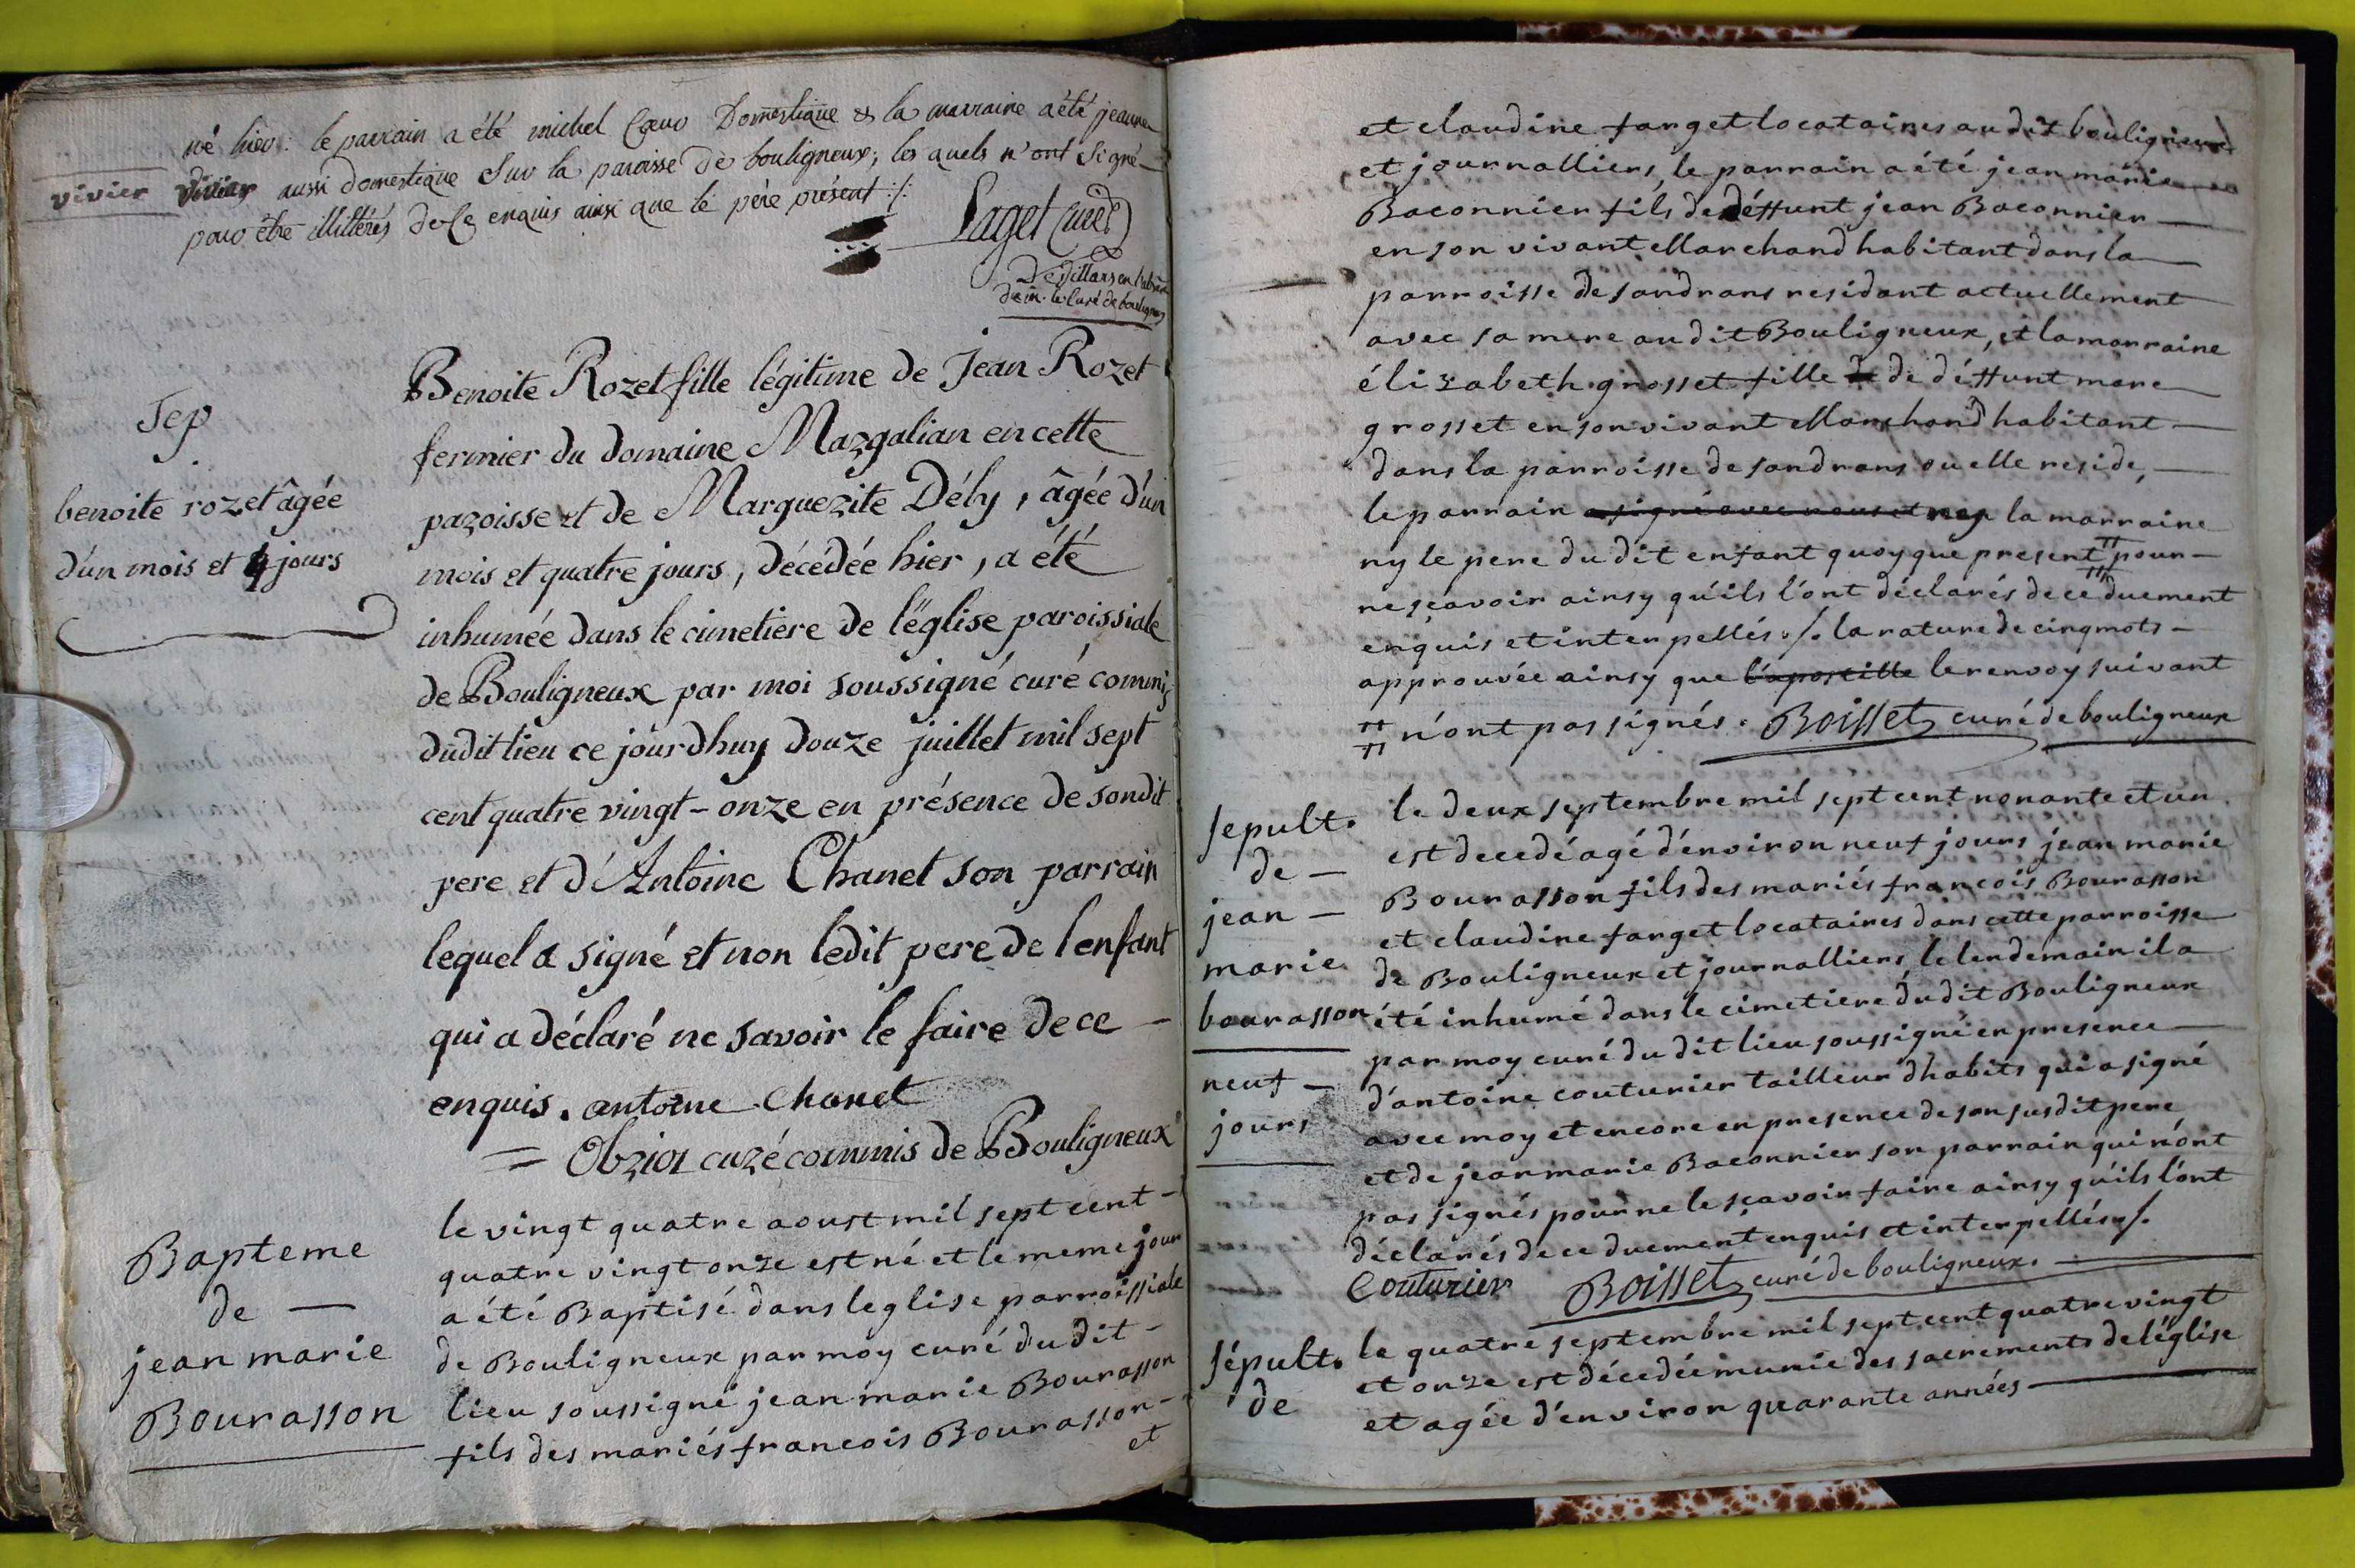 né hier : le parrain a été michel Cœur Domestique & la marraine a été jeanne
vivier
vivier aussi domestique Sur la paroisse de bouligneux ; les quels n'ont signé
pour être illittérés de ce enquis ainsi que le père présent ./.
Paget curé
De Villars en l'absence
de m. le Curé de bouligneux
Sep
benoite rozet âgée
d'un mois et 4 jours
Benoite Rozet fille légitime de Jean Rozet
fermier du domaine Mazgalian en cette
paroisse et de Marguerite Déby, âgée d'un
mois et quatre jours, décédée hier, a été
inhumée dans le cimetiere de l'église paroissiale
de Bouligneux par moi soussigné curé commis
dudit lieu ce jourdhuy douze juillet mil sept
cent quatre vingt-onze en présence de sondit
pere et d'Antoine Chanet son parrain
lequel a signé et non ledit pere de l'enfant
qui a déclaré ne savoir le faire de ce —
enquis. antoine Chanet
= Obrier curé commis de Bouligneux
Bapteme
de —
jean marie
Bourasson
le vingt quatre aoust mil sept cent -
quatre vingt onze est né et le meme jour
a été Baptisé dans leglise parroissiale
de Bouligneux par moy curé du dit -
lieu soussigné jean marie Bourasson
fils des mariés francois Bourasson -
et
et claudine farget locataires au dit bouligneux
et journalliers, le parrain a été jean marie
Baconnier fils de déffunt jean Baconnier —
en son vivant Marchand habitant dans la —
parroisse de sandrans residant actuellement
avec sa mere au dit Bouligneux, et la marraine
élizabeth grosset fille de déffunt marc
grosset en son vivant Marchand habitant —
dans la parroisse de sandrans ou elle reside, —
le parrain a signé avec nous et non la marraine
ny le pere du dit enfant quoyque present # pour —
ne sçavoir ainsy qu'ils l'ont déclarés de ce duement
enquis et interpellés ./. la rature de cinq mots —
approuvée ainsy que l'apostille le renvoy suivant
# n'ont pas signés. Boisset curé de bouligneux
sepult.
de —
jean —
marie
bourasson
neuf —
jours
le deux septembre mil sept cent nonante et un
est decedé agé d'environ neuf jours jean marie
Bourasson fils des mariés francois Bourasson
et claudine farget locataires dans cette parroisse
de Bouligneux et journalliers, le lendemain il a
été inhumé dans le cimetiere du dit Bouligneux
par moy curé du dit lieu soussigné en presence
d'antoine couturier tailleur d'habits qui a signé
avec moy et encore en presence de son susdit pere
et de jean marie Baconnier son parrain qui n'ont
pas signés pour ne le sçavoir faire ainsy qu'ils l'ont
déclarés de ce duement enquis et interpellés ./.
Couturier Boisset curé de bouligneux.
sépult.
de
le quatre septembre mil sept cent quatre vingt
et onze est décedée munie des sacrements de l'église
et agée d'environ quarante années —